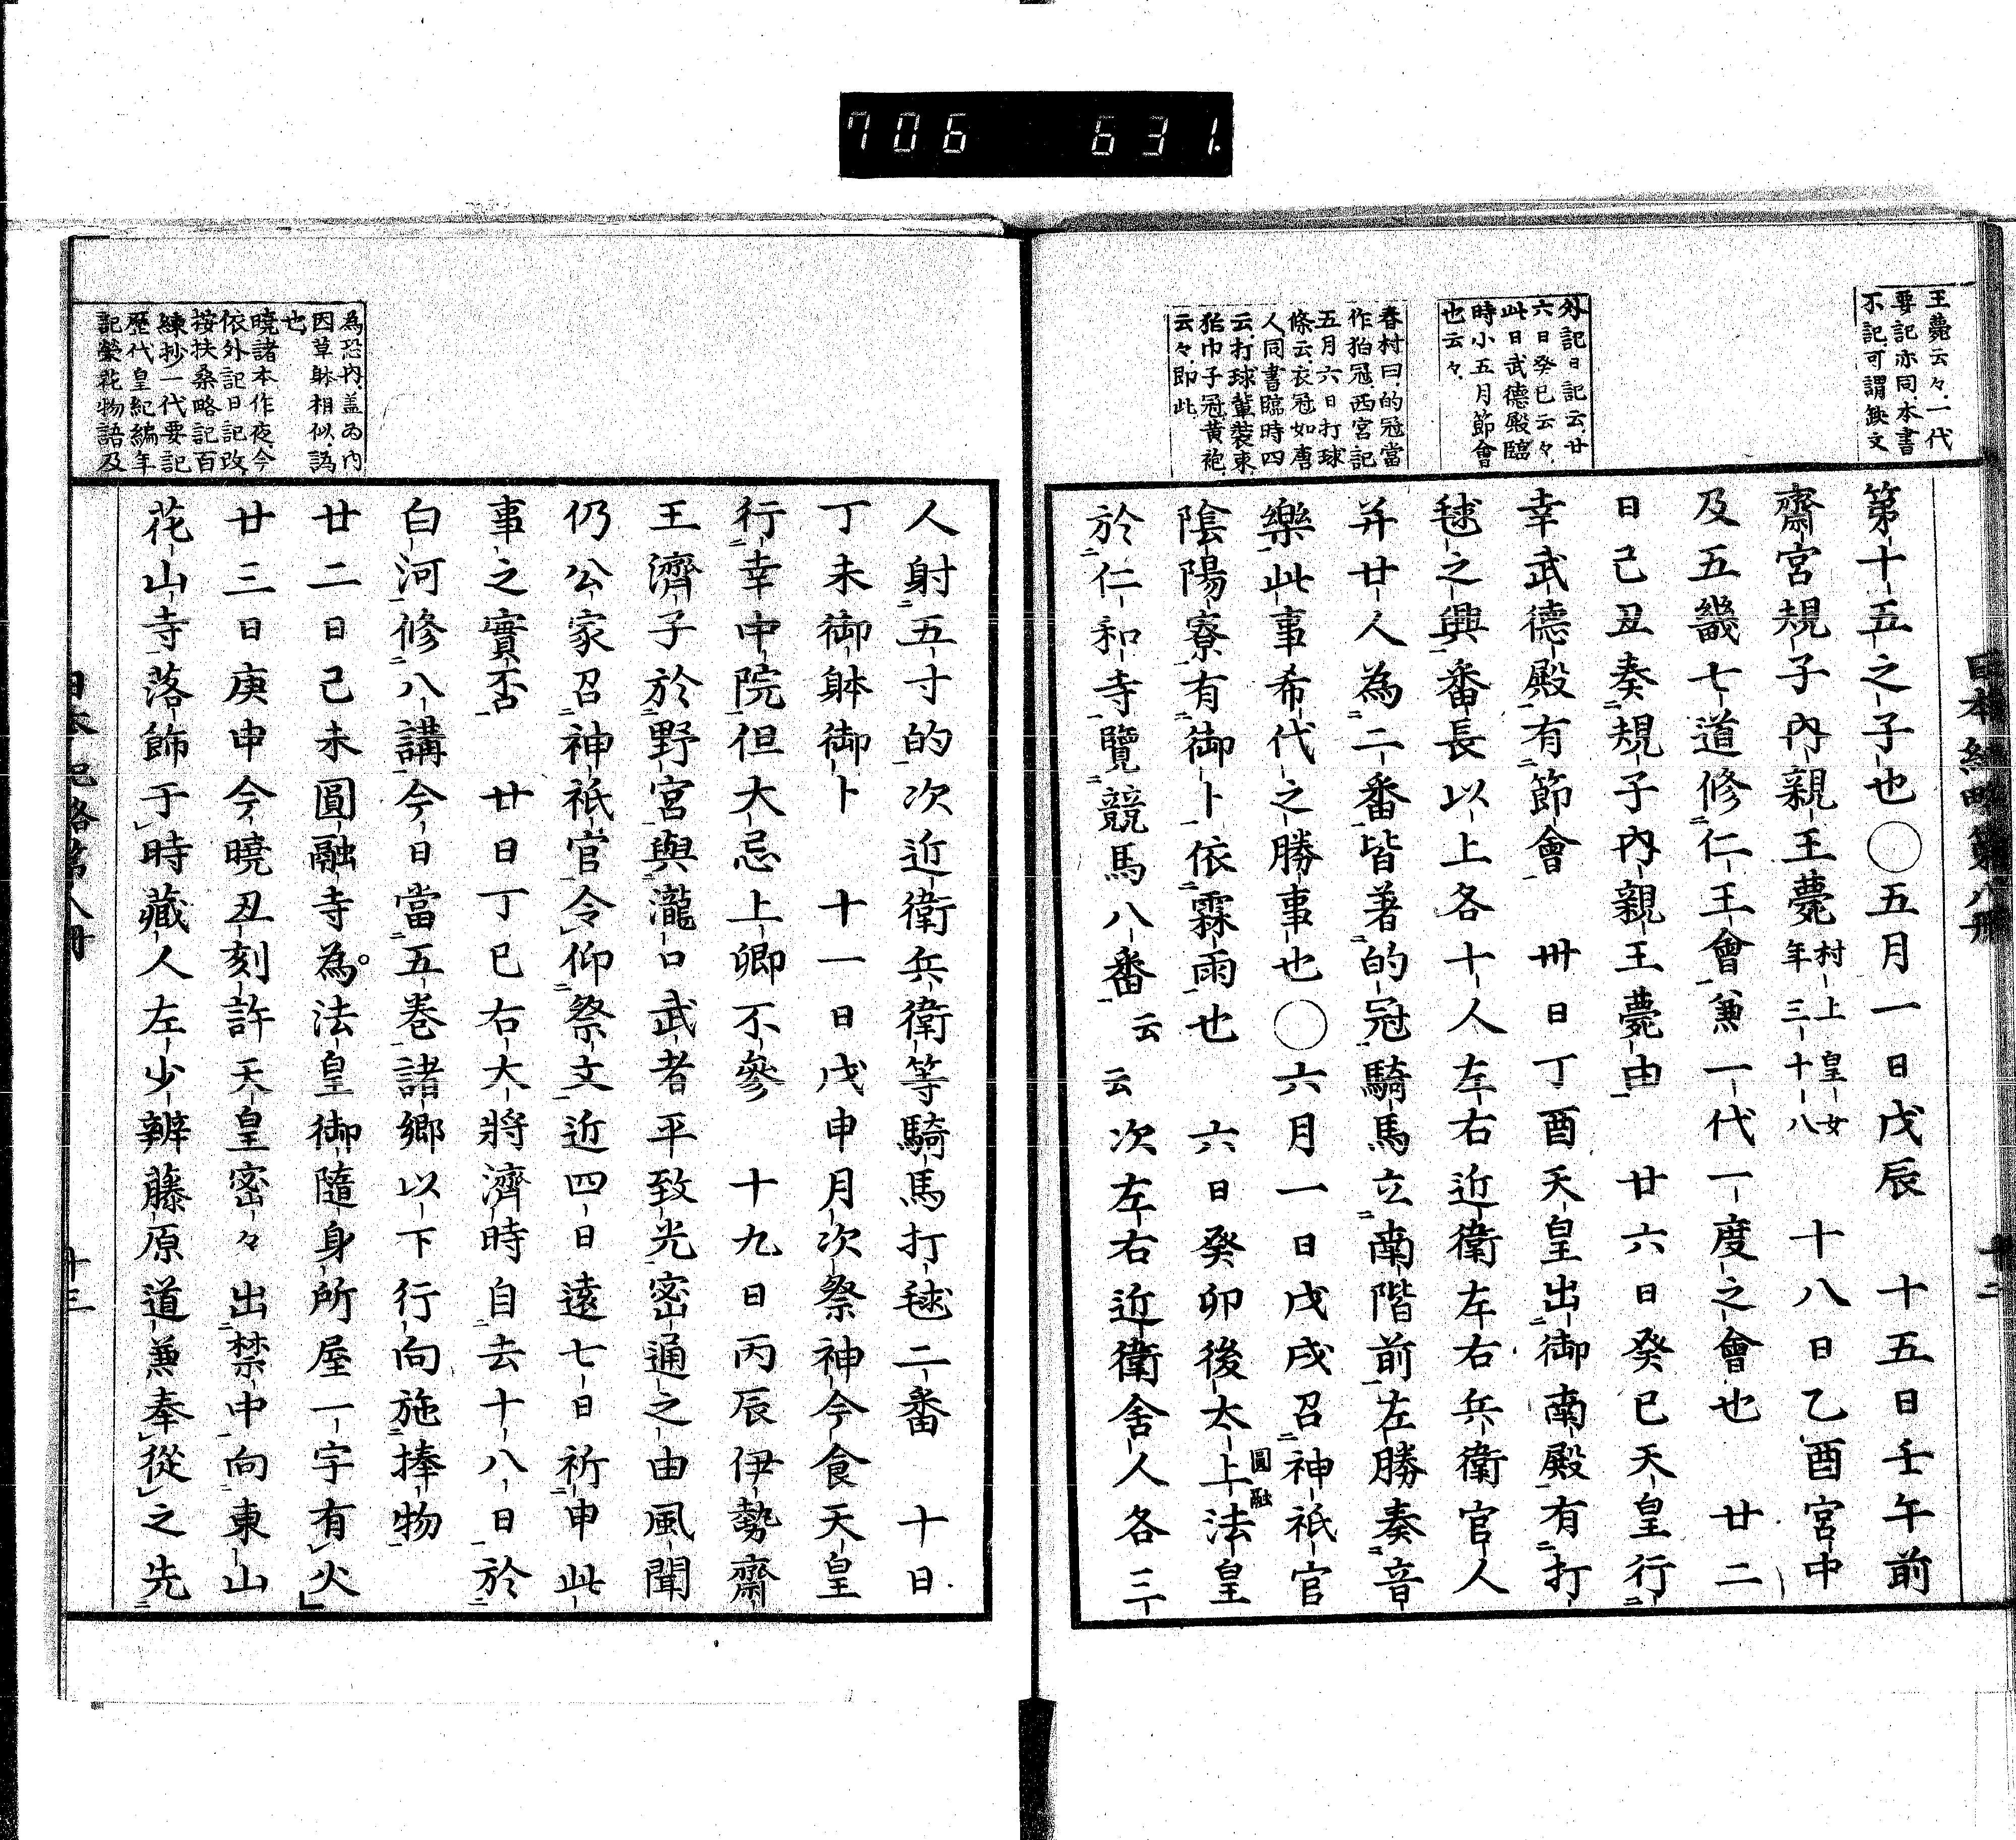 706 631.
王薨云々、一代
要記亦同、本書
不記、可謂缺文
外記日記云、廿
六日癸巳云々、
此日武德殿臨
時小五月節會
也云々、
春村曰、的冠當
作狛冠、西宮記
五月六日打球
條云、衣冠如唐
人、同書臨時四
云、打球輩裝束、
狛巾子冠、黄袍
云々、即此
日本紀略第八册
十二
第十五之子也〇五月一日戊辰 十五日壬午前
齋宮規子內親王薨村上皇女年三十八 十八日乙酉宮中
及五畿七道修仁王會兼一代一度之會也 廿二
日己丑奏規子內親王薨由 廿六日癸巳天皇行
幸武德殿有節會 卅日丁酉天皇出御南殿有打
毬之興番長以上各十人左右近衛左右兵衛官人
并廿人為二番皆著的冠騎馬立南階前左勝奏音
樂此事希代之勝事也〇六月一日戊戌召神祇官
陰陽寮有御卜依霖雨也 六日癸卯後太上法皇圓融
於仁和寺覽競馬八番云云次左右近衛舍人各三
為恐內、盖為內
因草躰相似、譌
也、
曉諸本作夜、今
依外記日記改、
按扶桑略記百
練抄一代要記
歷代皇紀編年
記榮花物語及
人射五寸的次近衛兵衛等騎馬打毬二番 十日
丁未御躰御卜 十一日戊申月次祭神今食天皇
行幸中院但大忌上卿不參 十九日丙辰伊勢齋
王濟子於野宮與瀧口武者平致光密通之由風聞
仍公家召神祇官令仰祭文近四日遠七日祈申此
事之實否 廿日丁巳右大將濟時自去十八日於
白河修八講今日當五卷諸鄉以下行向施捧物
廿二日己未圓融寺為法皇御隨身所屋一字有火
廿三日庚申今曉丑刻許天皇密々出禁中向東山
花山寺落飾于時藏人左少辨藤原道兼奉從之先
日本紀略第八冊
十三